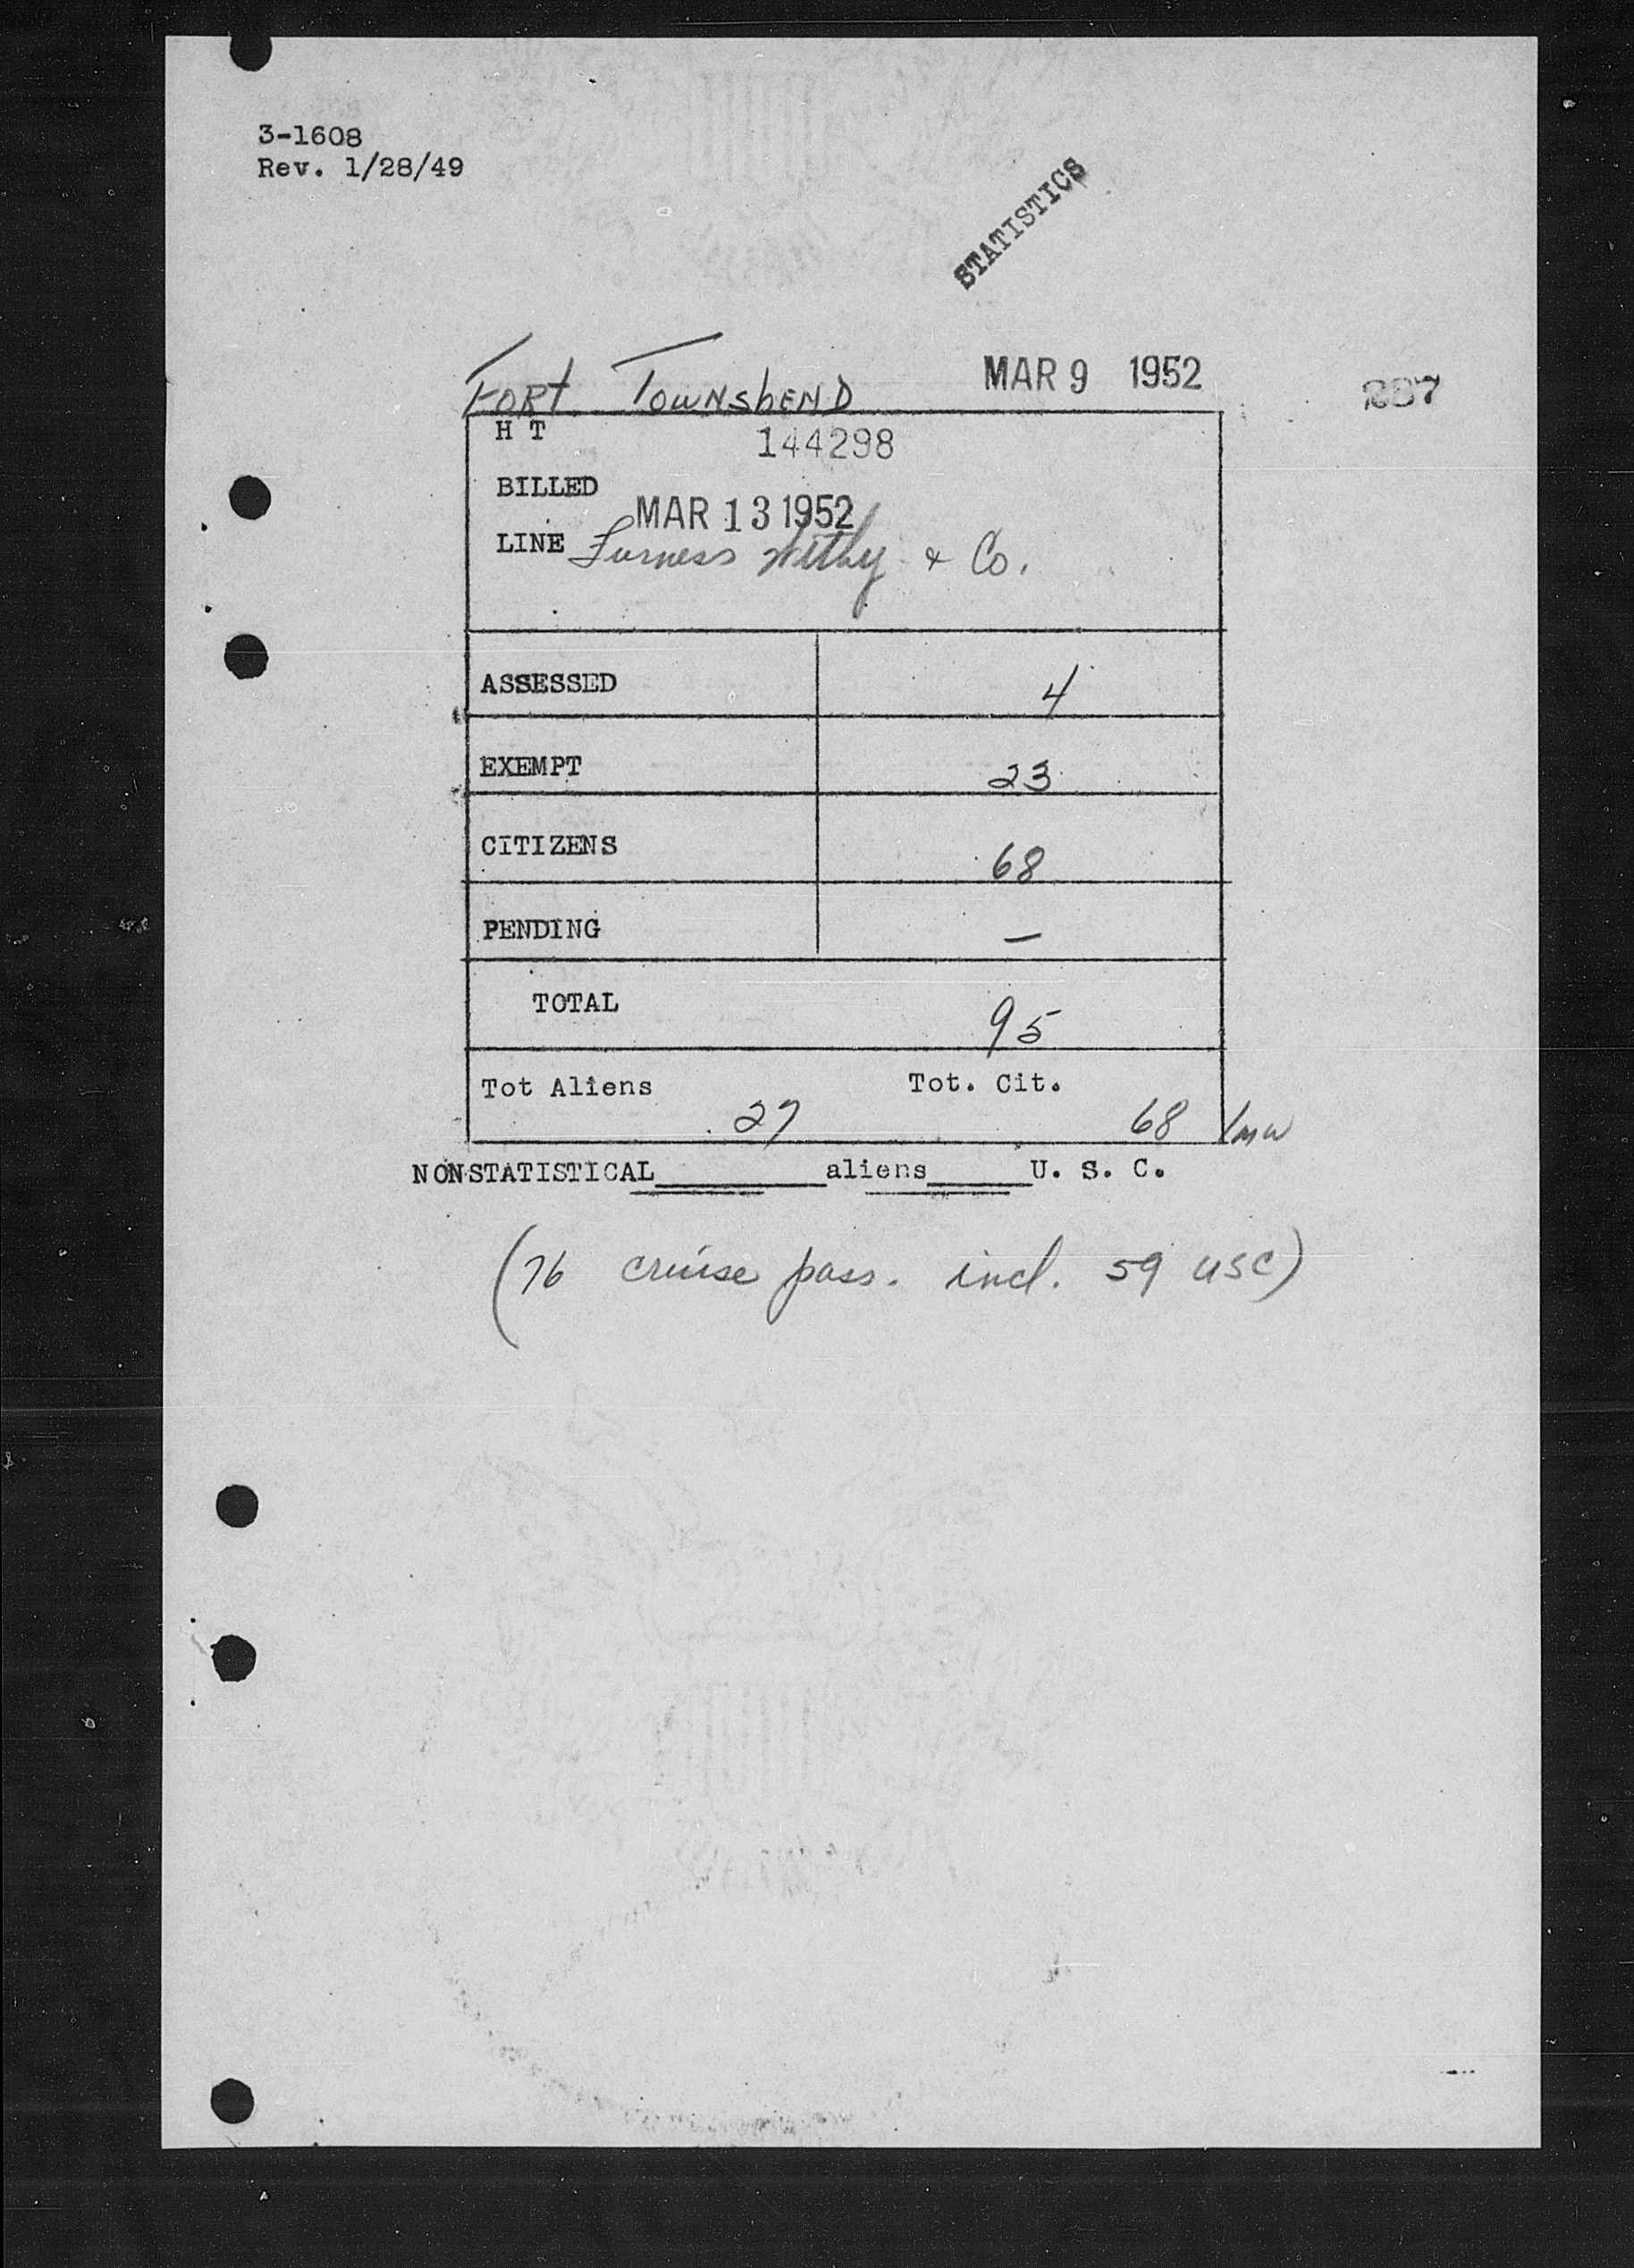 3-1608
Rev. 1/28/49
STATISTICS
FORT TOWNSHEND MAR 9 1952
H T 144298
BILLED MAR 13 1952
LINE Furness Withy & Co.
ASSESSED 4
EXEMPT 23
CITIZENS 68
PENDING —
TOTAL 95
Tot Aliens 27 Tot. Cit. 68 /mw
NONSTATISTICAL__________aliens______U. S. C.
(76 cruise pass. incl. 59 USC)